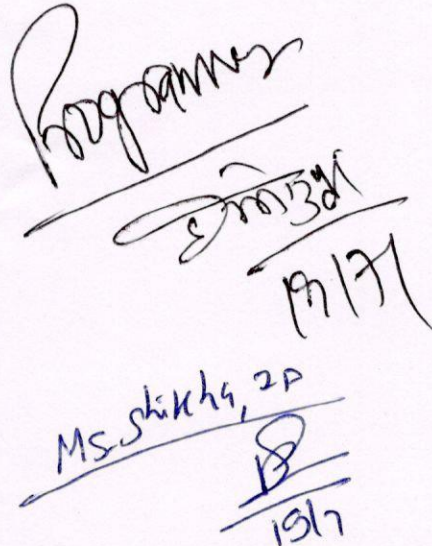 Programmer
19/7/
Ms. Shikha, 2P
19/7